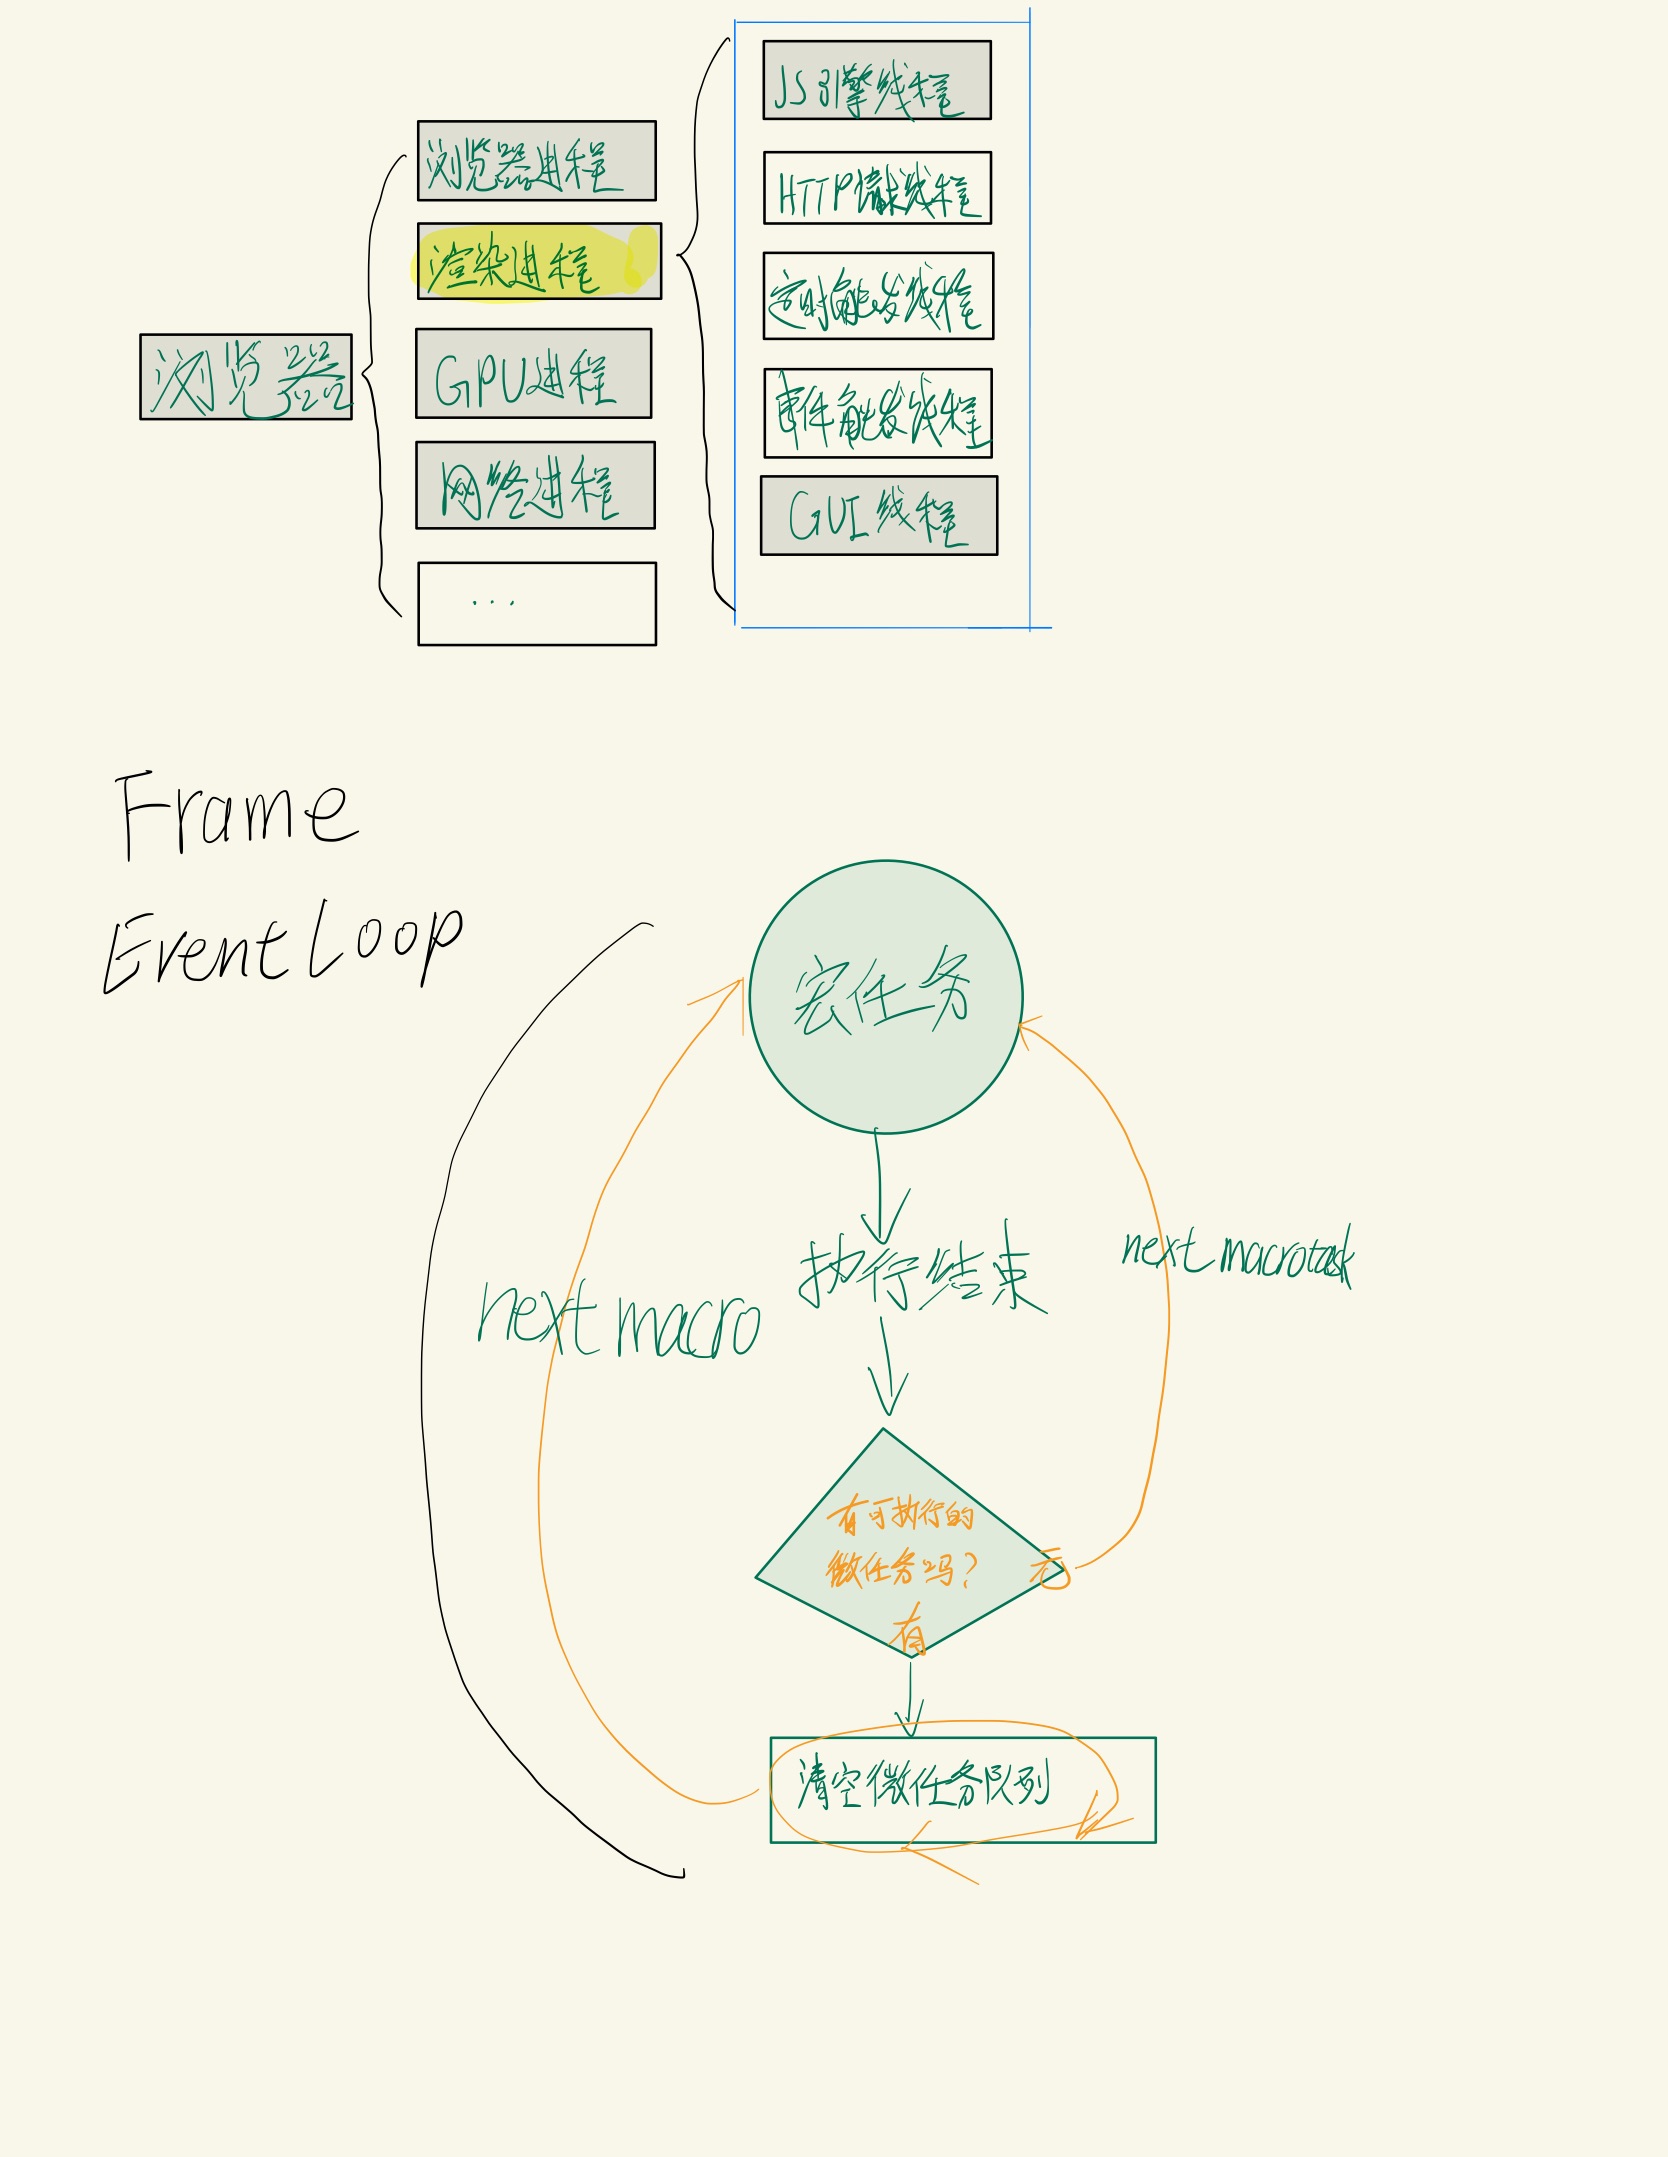 浏览器
浏览器进程
渲染进程
GPU进程
网络进程
...
JS引擎线程
HTTP请求线程
定时触发线程
事件触发线程
GUI线程
Frame
Event Loop
宏任务
执行结束
next macro
next macrotask
有可执行的
微任务吗？
无
有
清空微任务队列